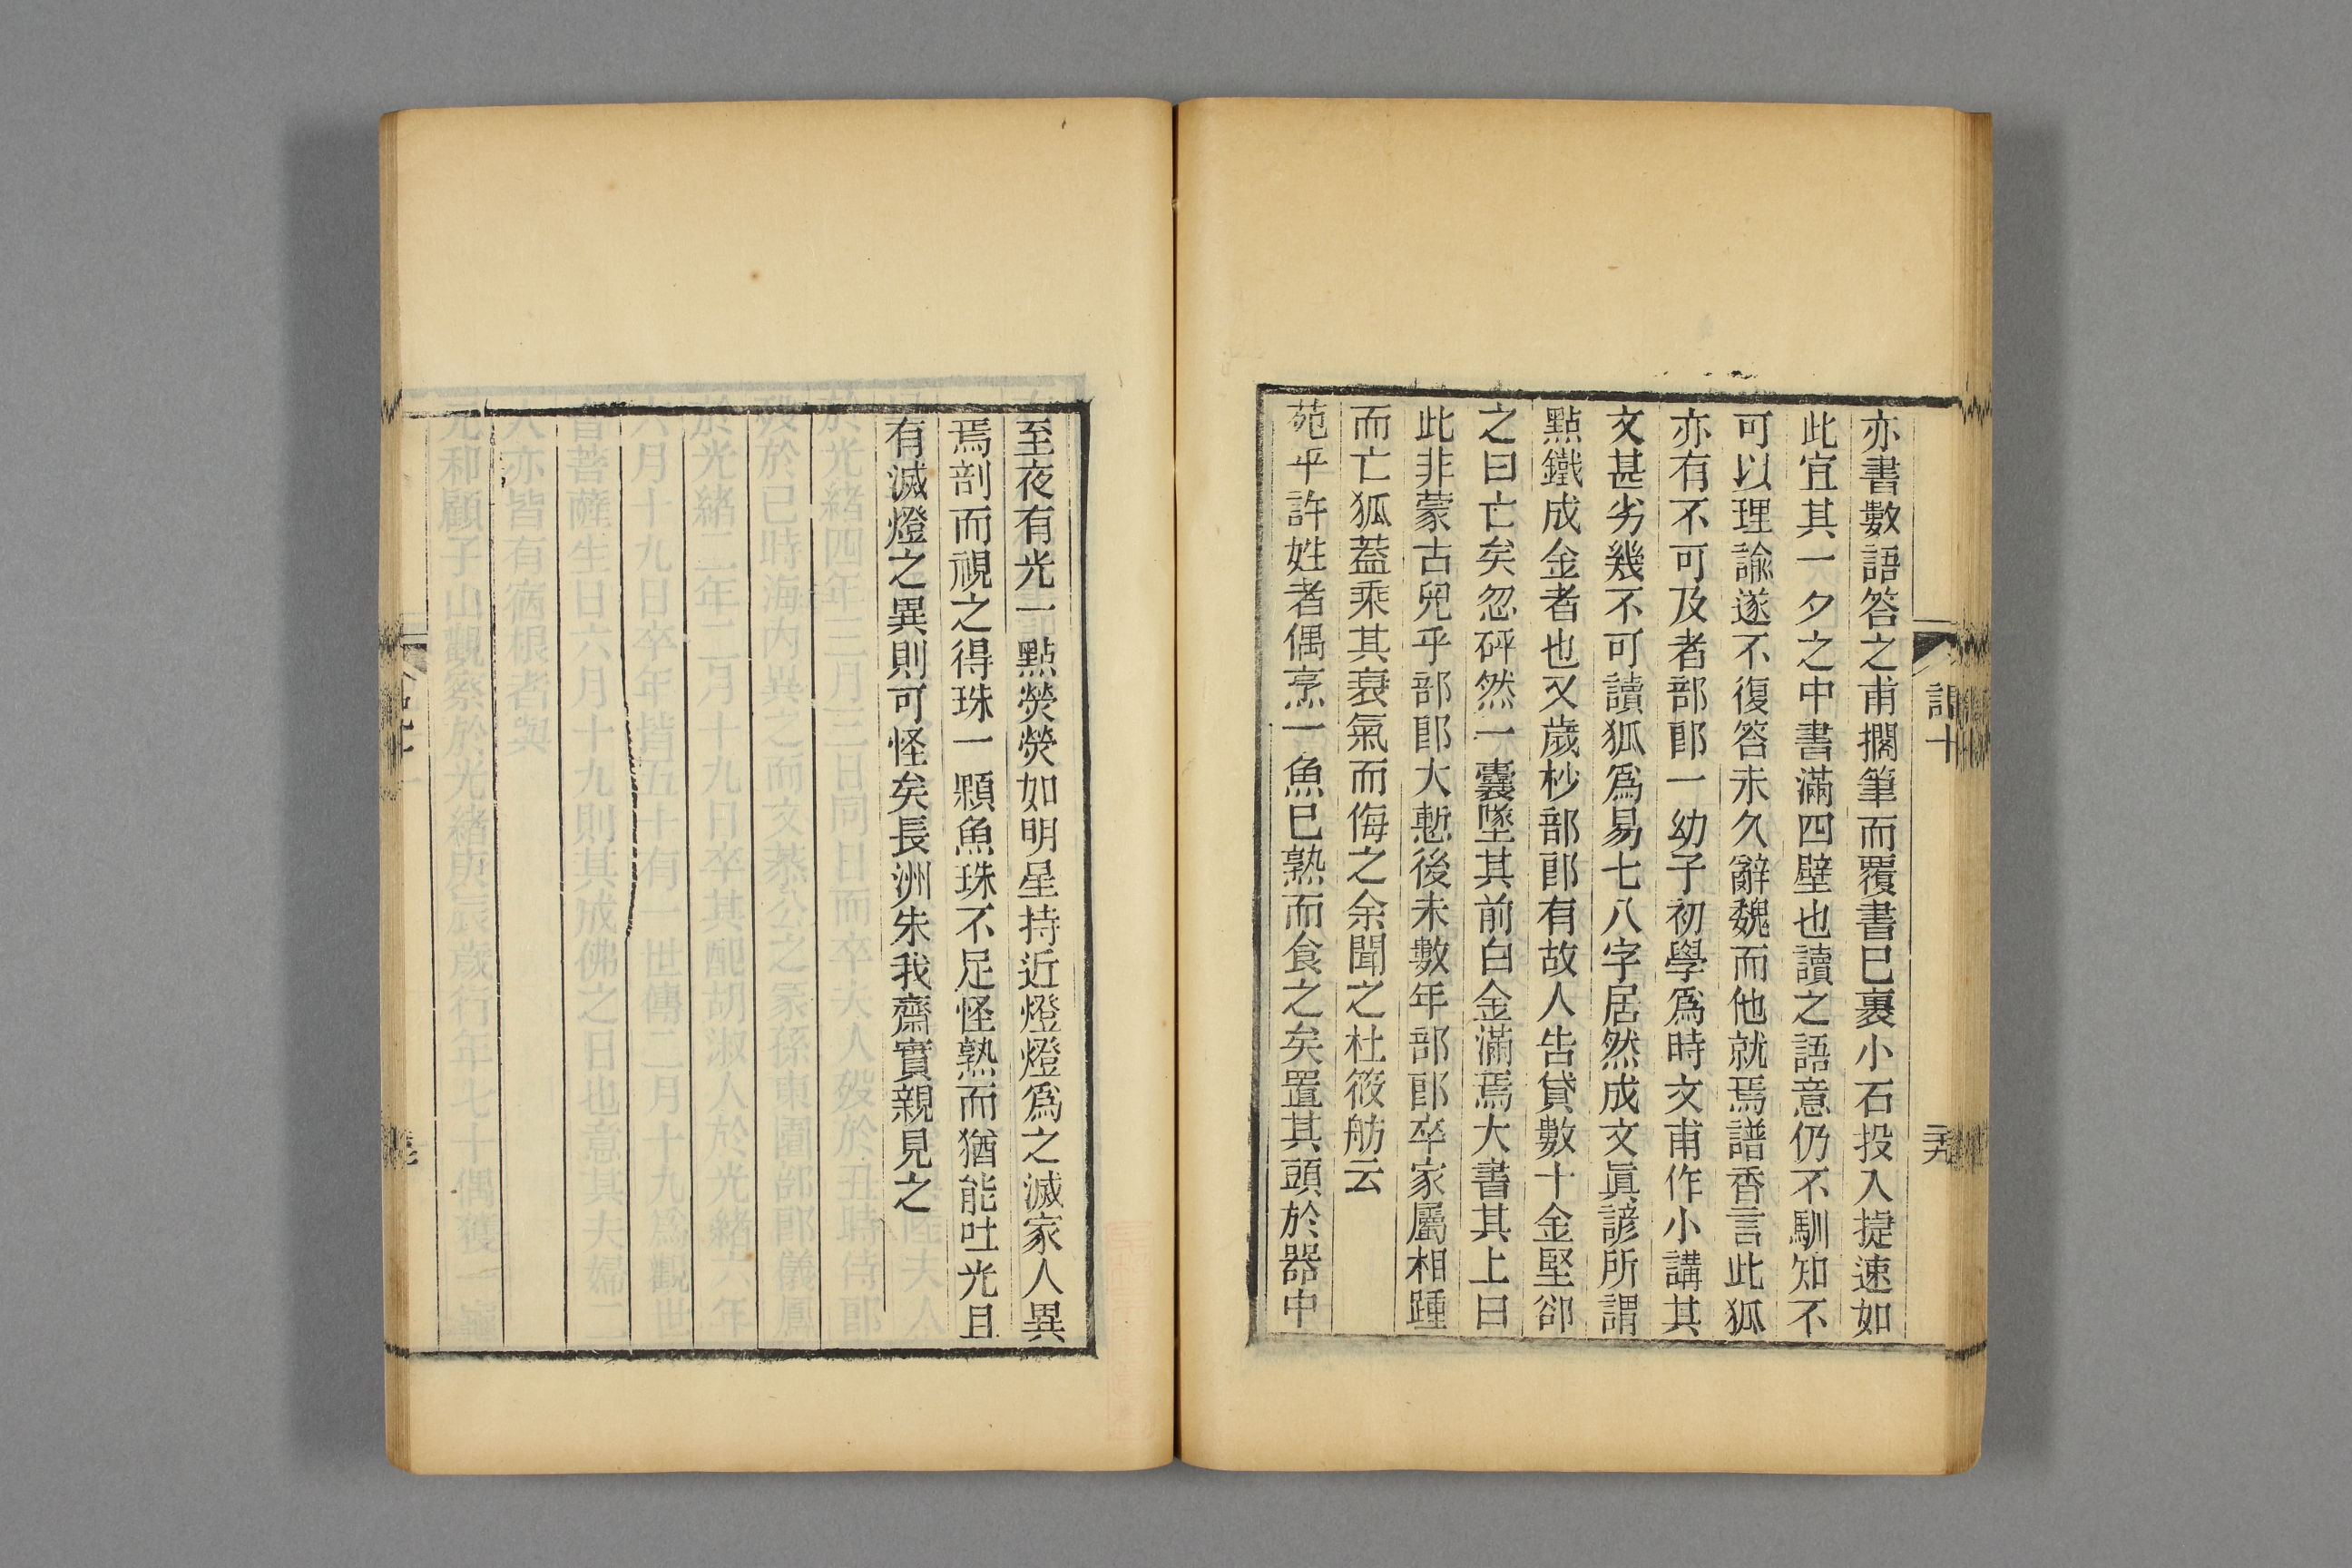 亦書數語答之甫擱筆而覆書巳裹小石投入捷速如
此宜其一夕之中書滿四壁也讀之語意仍不馴知不
可以理諭遂不復答未久辭魏而他就焉譜香言此狐
亦有不可及者部郎一幼子初學爲時文甫作小講其
文甚劣幾不可讀狐爲易七八字居然成文眞諺所謂
點鐵成金者也又歲杪部郎有故人告貸數十金堅卻
之曰亡矣忽砰然一囊墜其前白金滿焉大書其上曰
此非蒙古兒乎部郎大慙後未數年部郎卒家屬相踵
而亡狐蓋乘其衰氣而侮之余聞之杜筱舫云
苑平許姓者偶烹一魚巳熟而食之矣置其頭於器中
至夜有光一點熒熒如明星持近燈燈爲之滅家人異
焉剖而視之得珠一顆魚珠不足怪熟而猶能吐光且
有滅燈之異則可怪矣長洲朱我齋實親見之